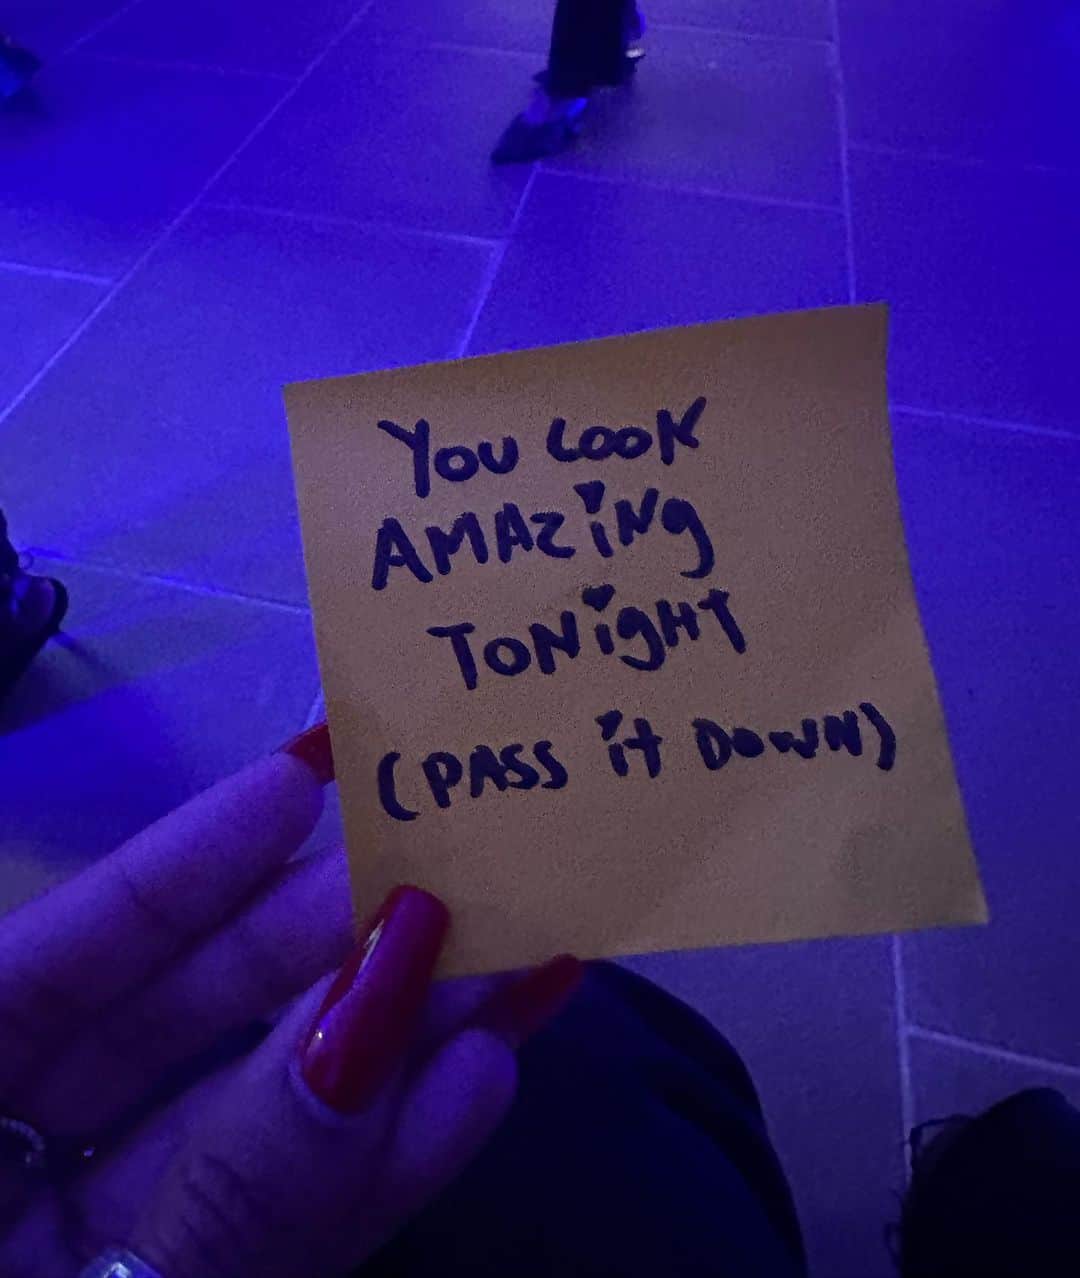 YOU LOOK
AMAZiNg
TONigHT
(PASS it DOWN)